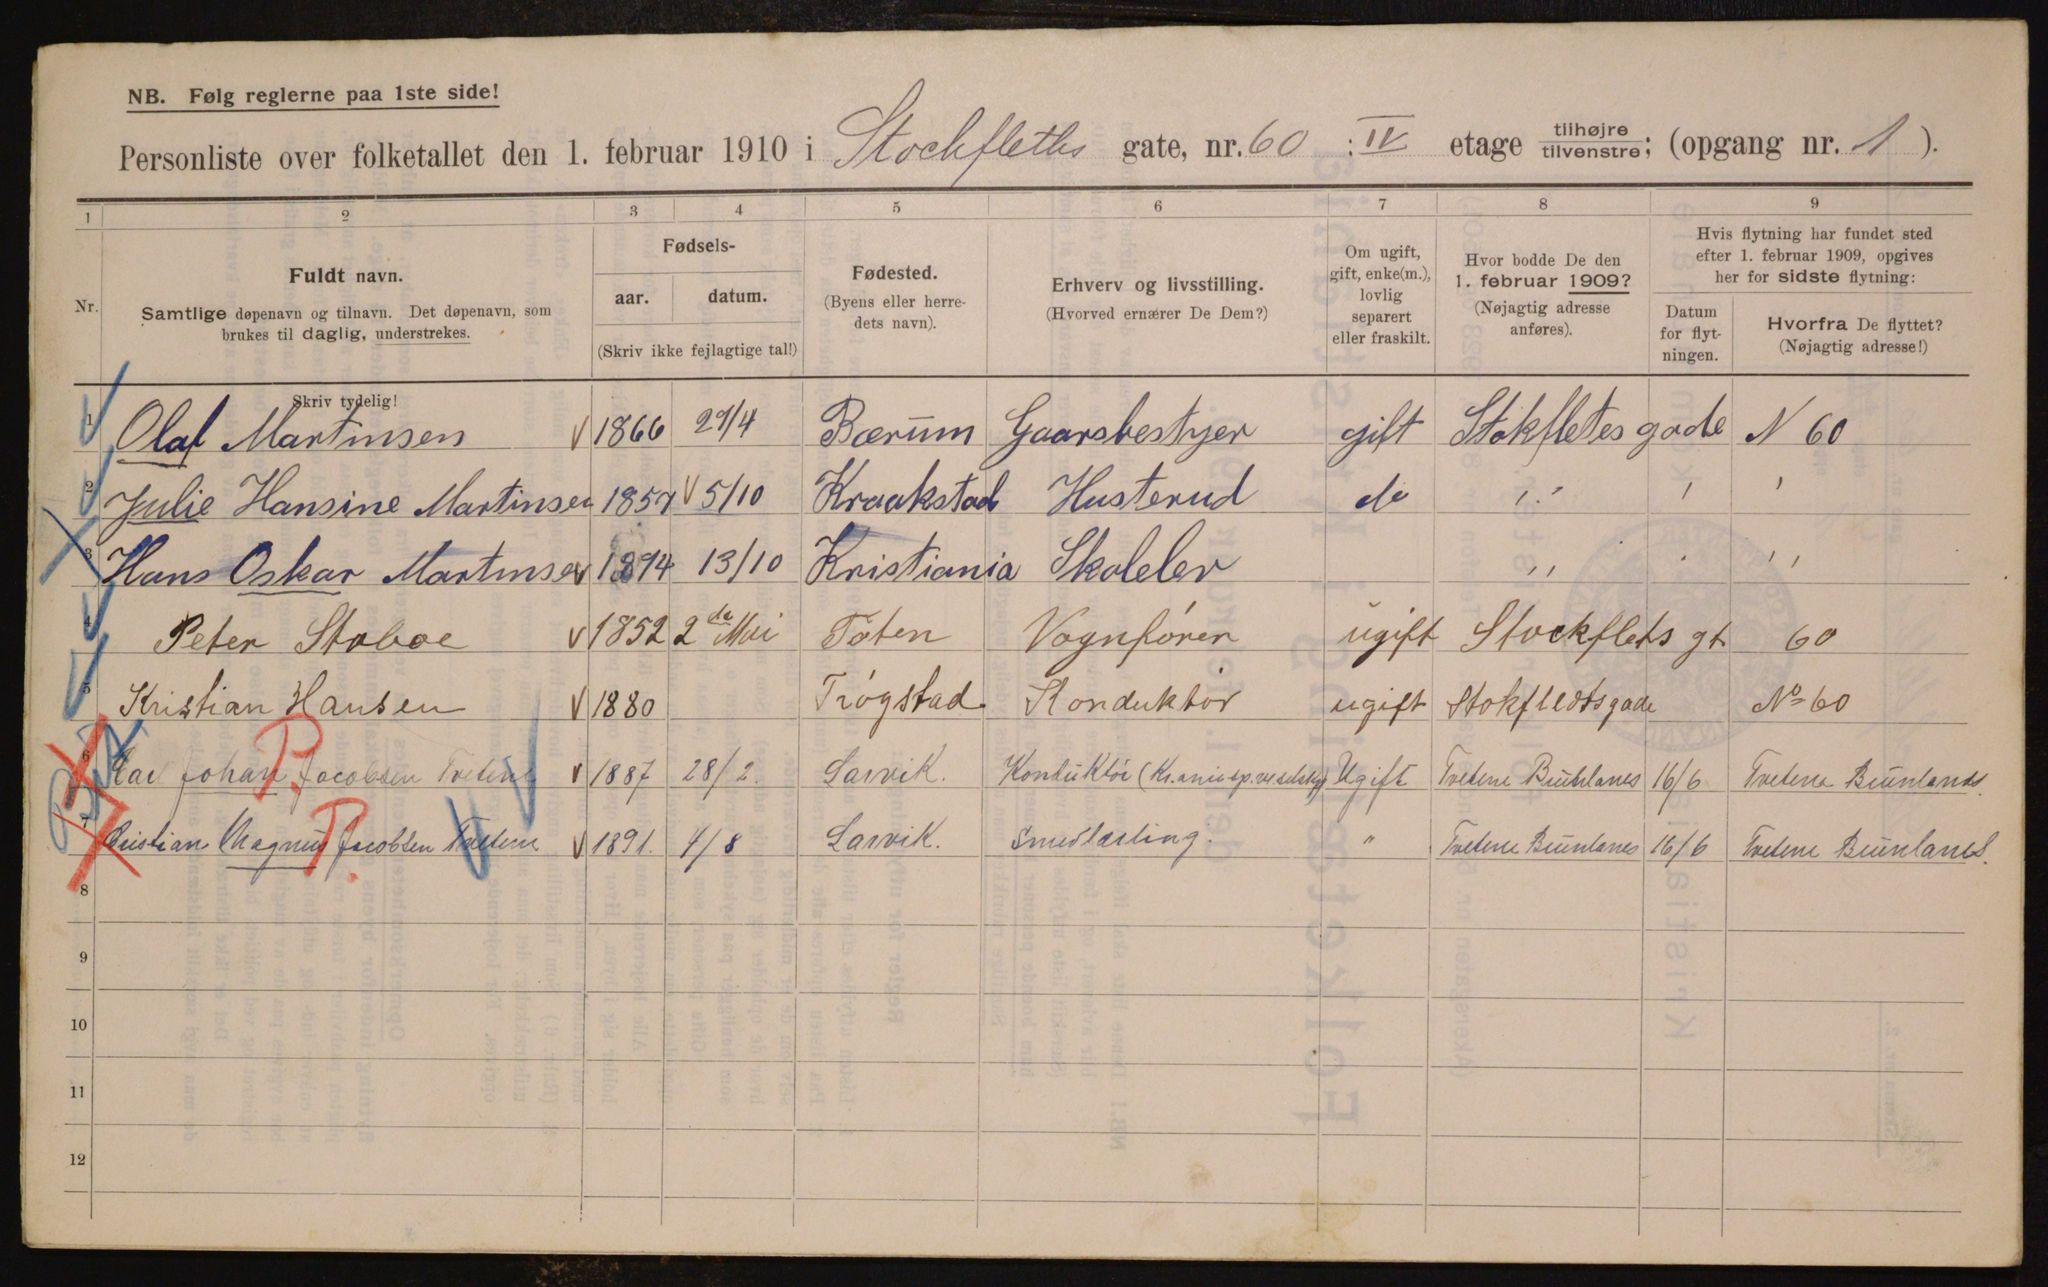 NB. Følg reglerne paa 1ste side!
Personliste over folketallet den 1. februar 1910 i Stockfleths gate, nr. 60 : IV etage tilhøjre tilvenstre; (opgang nr. 1 ).
1 2 3 4 5 6 7 8 9
Nr.
Fuldt navn.
Samtlige døpenavn og tilnavn. Det døpenavn, som
brukes til daglig, understrekes.
Skriv tydelig!
Fødsels-
aar. datum.
(Skriv ikke fejlagtige tal!)
Fødested.
(Byens eller herre-
dets navn).
Erhverv og livsstilling.
(Hvorved ernærer De Dem?)
Om ugift,
gift, enke(m.),
lovlig
separert
eller fraskilt.
Hvor bodde De den
1. februar 1909?
(Nøjagtig adresse
anføres).
Hvis flytning har fundet sted
efter 1. februar 1909, opgives
her for sidste flytning:
Datum
for flyt-
ningen.
Hvorfra De flyttet?
(Nøjagtig adresse!)
1 Olaf Martinsen 1866 29/4 Bærum Gaarsbestyer gift Stokfletes gade N 60
2 Julie Hansine Martinsen 1857 5/10 Kraakstad Husterud do " ' '
3 Hans Oskar Martinsen 1894 13/10 Kristiania Skoleelev " "
4 Peter Staboe 1852 2de Mai Toten Vognfører ugift Stockflets gt 60
5 Kristian Hansen 1880 Trøgstad Konduktør ugift Stokfledtsgade No 60
6 Carl Johan Jacobsen Tvetene 1887 28/2. Larvik. Konduktør (Kr.ania sp.veiselskap) Ugift Tvetene Brunlanes 16/6 Tvetene Brunlanes.
7 Cristian Magnus Jacobsen Tvetene 1891. 4/8 Larvik. Smedlærling. " Tvetene Brunlanes 16/6 Tvetene Brunlanes.
8
9
10
11
12